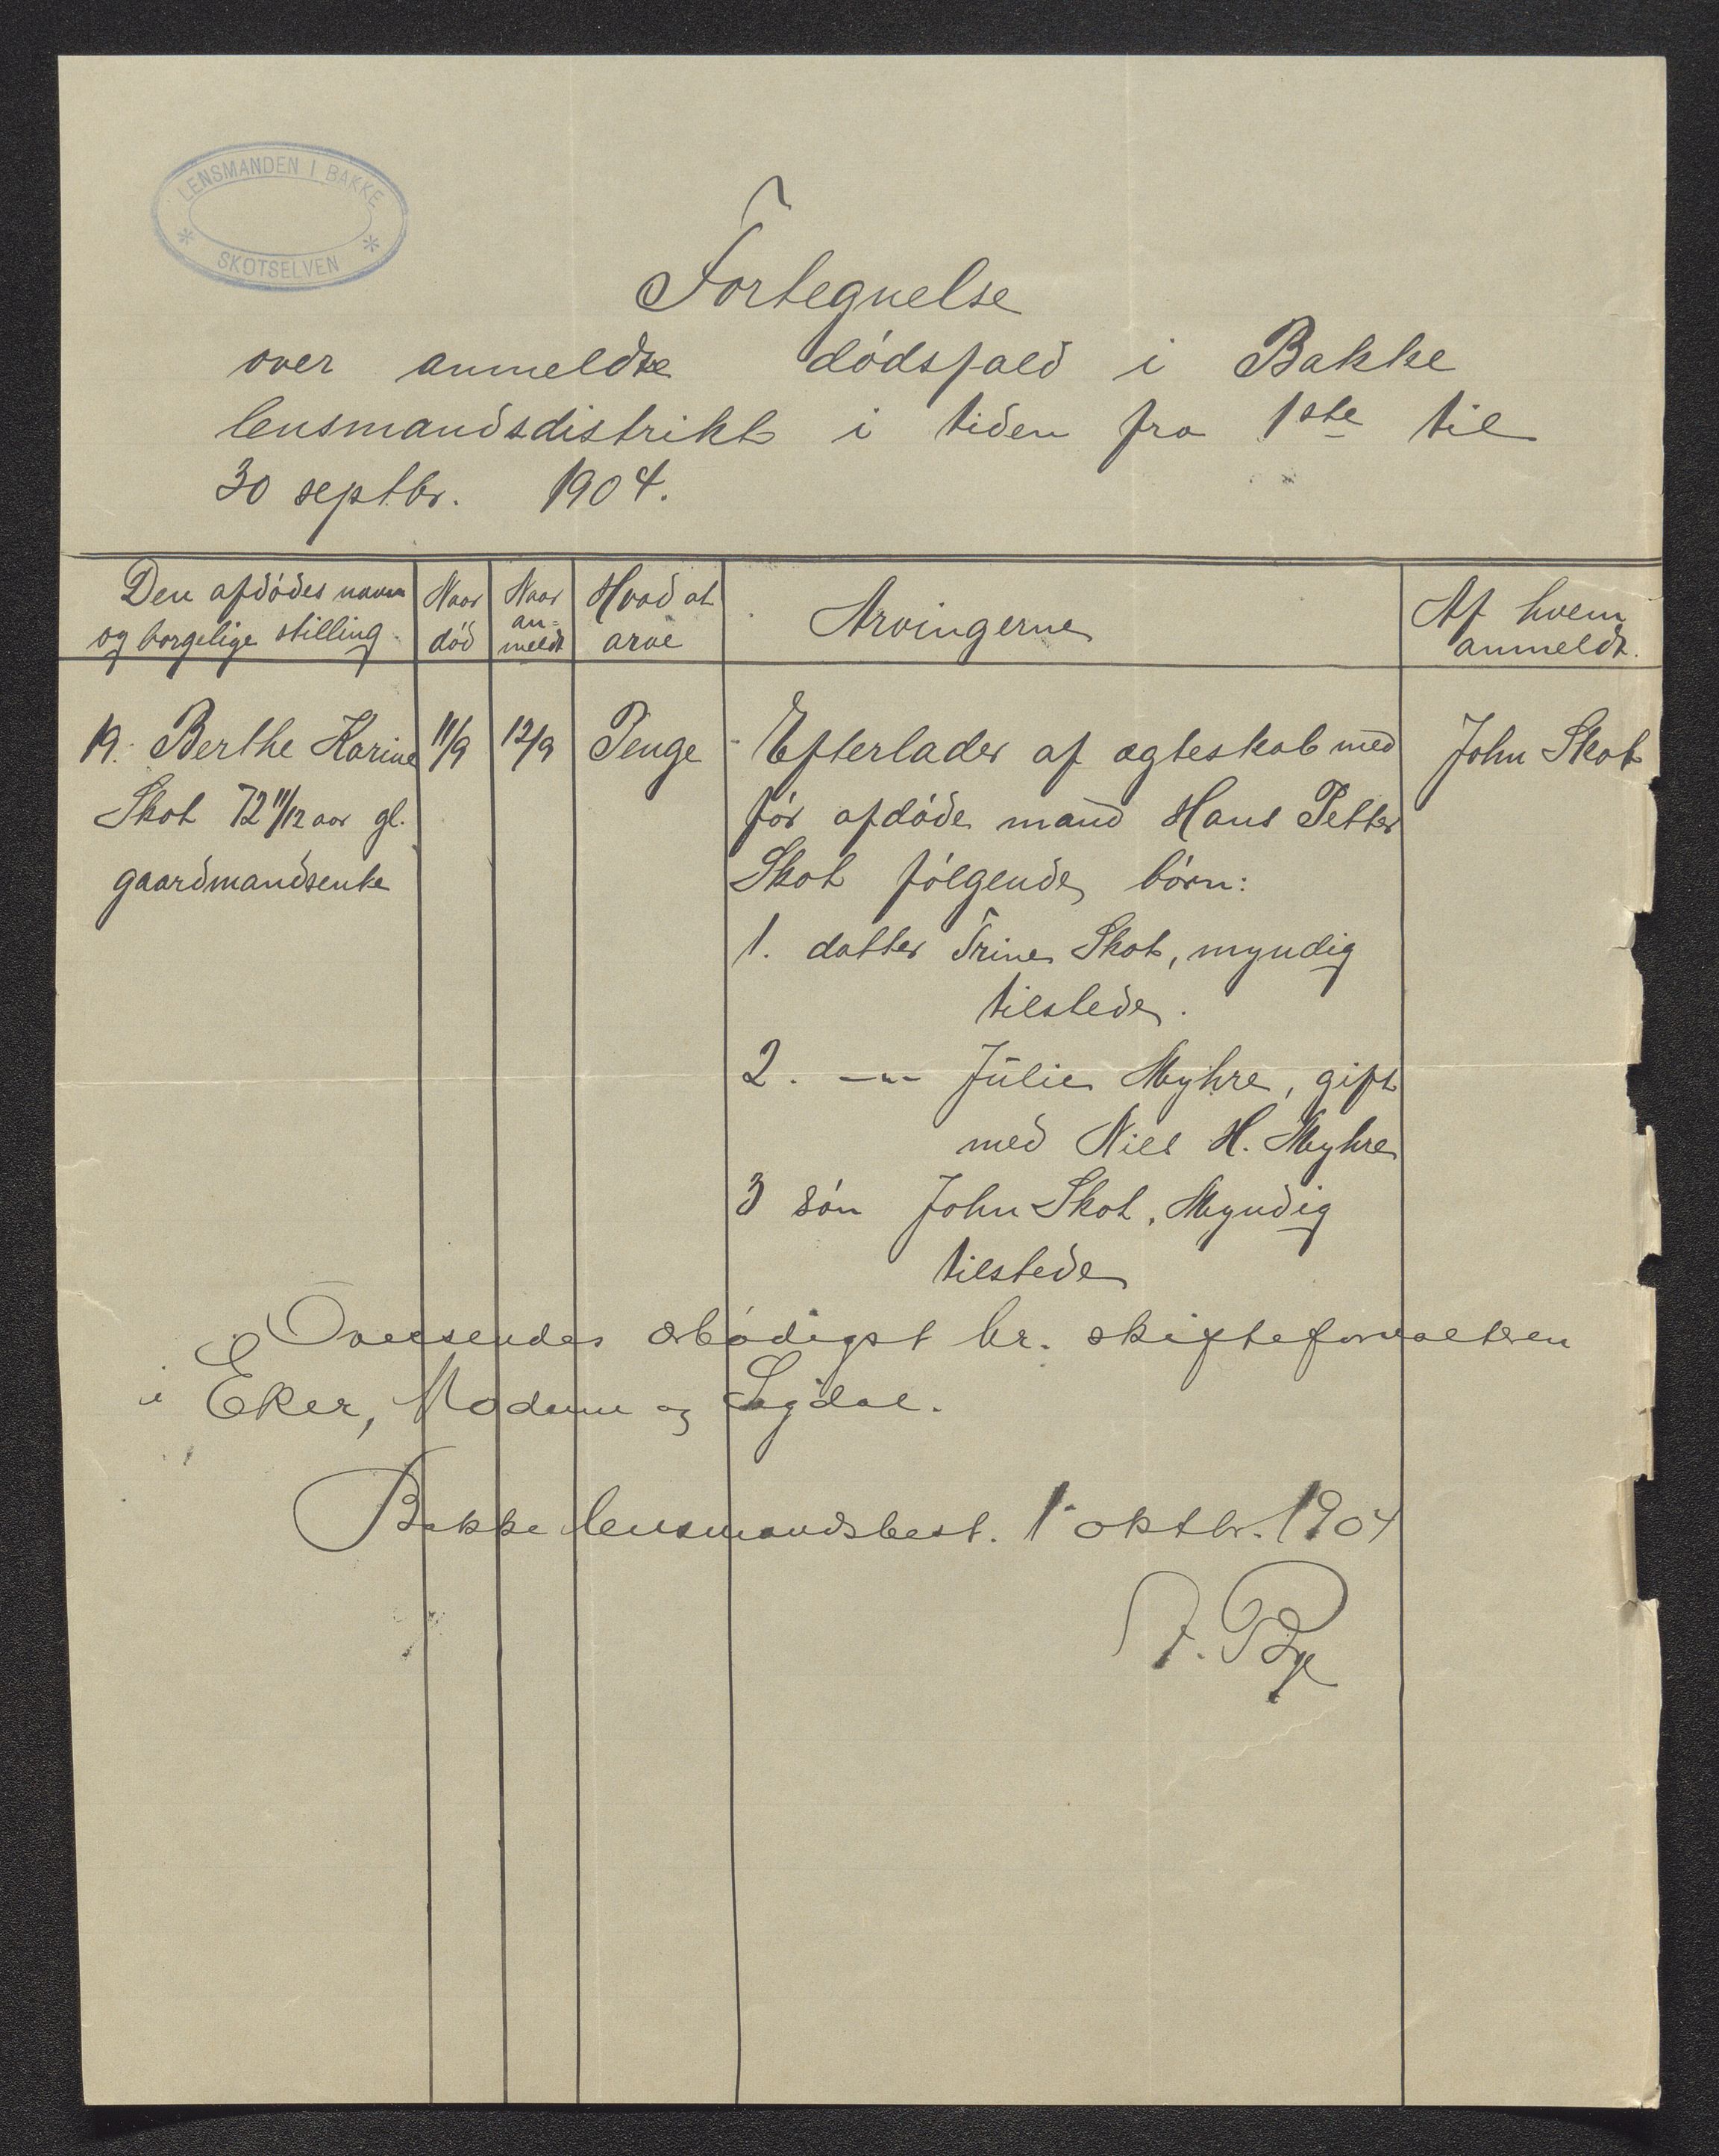 LENSMANDEN I BAKKE
* SKOTSELVEN *
Fortegnelse
over anmeldte dódsfald i Bakke
lensmandsdistrikt i tiden fra 1ste til
30 septbr. 1904.
Den afdódes navn og borgelige stilling.
Naar dód
Naar an= meldt
Hvad at arve
Arvingerne
Af hvem anmeldt.
19. Berthe Karine 11/9 12/9 Penge Efterlader af ægteskab med John Skot
Skot 72 11/12 aar gl. fór afdóde mand Hans Petter
gaardmandsenke Skot fólgende bórn:
1. datter Trine Skot, myndig
tilstede.
2. -"- Julie Myhre, gift
med Niels H. Myhre
3 són John Skot, Myndig
tilstede
Oversendes ærbódigst hr. skifteforvalteren
i Eker, Modum og Sigdal.
Bakke lensmandsbest. 1 oktbr. 1904